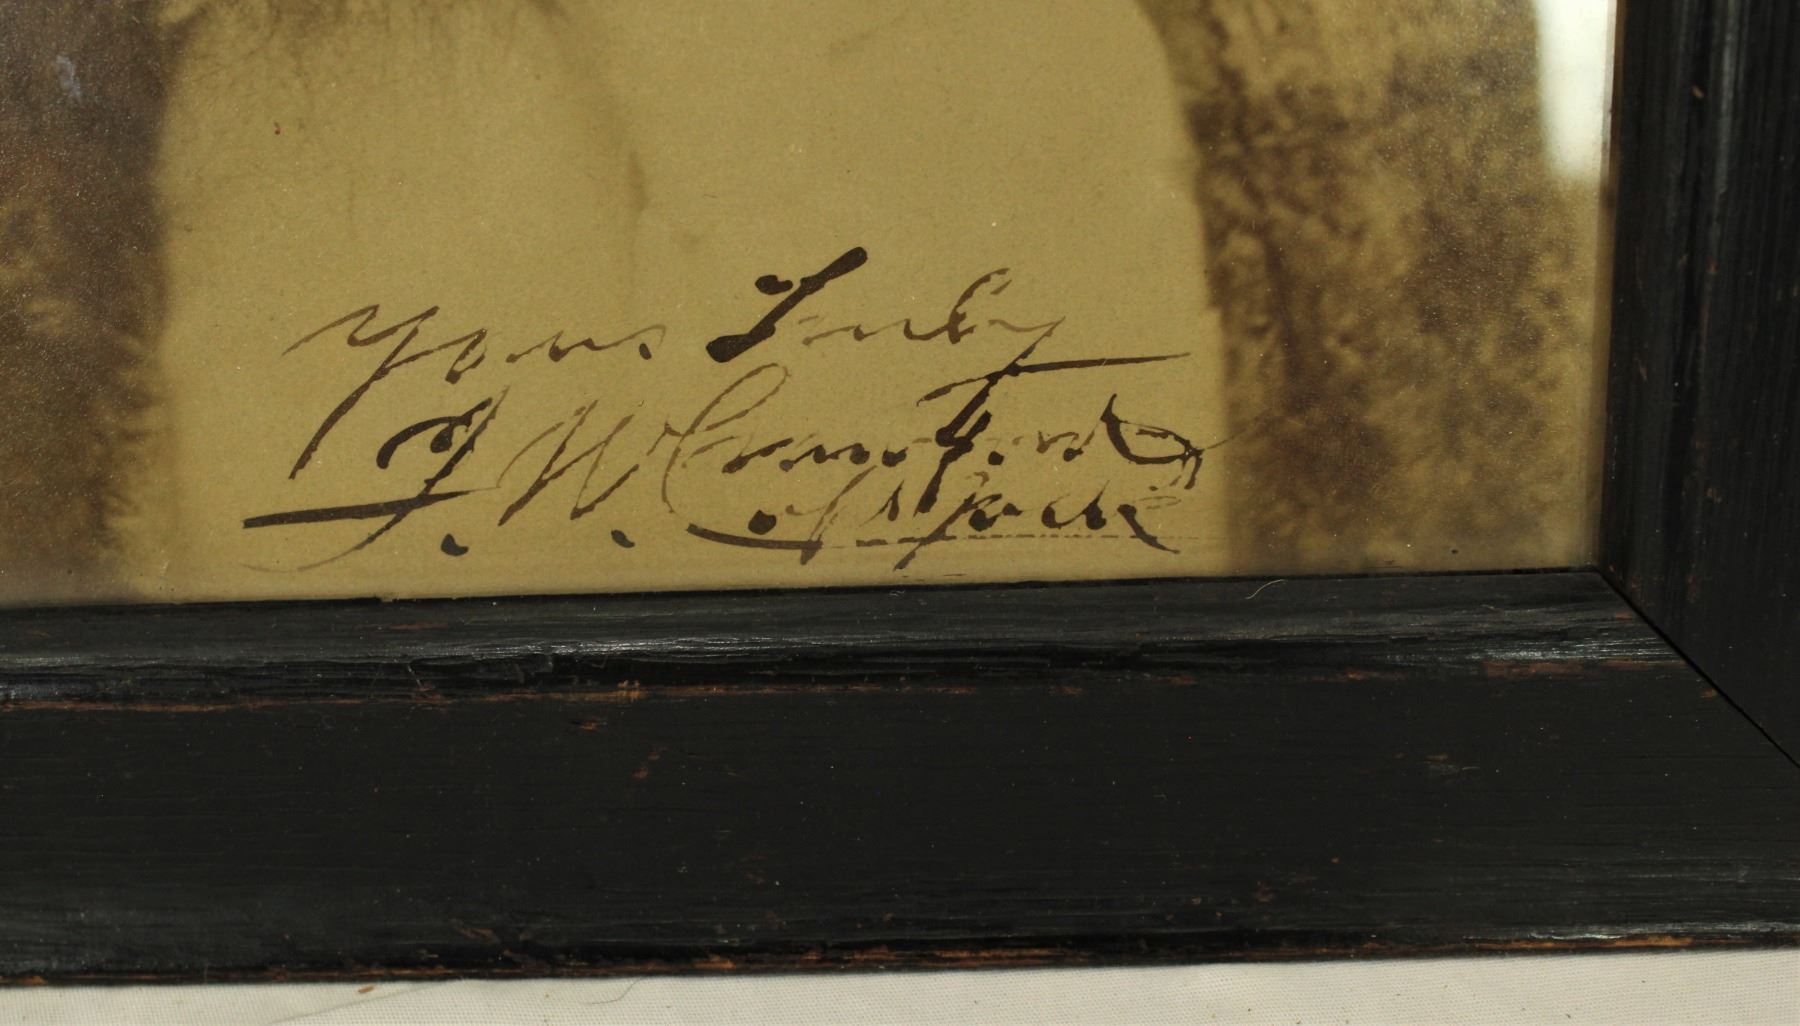 Yours Truly
J. W. Crawford
Capt Jack